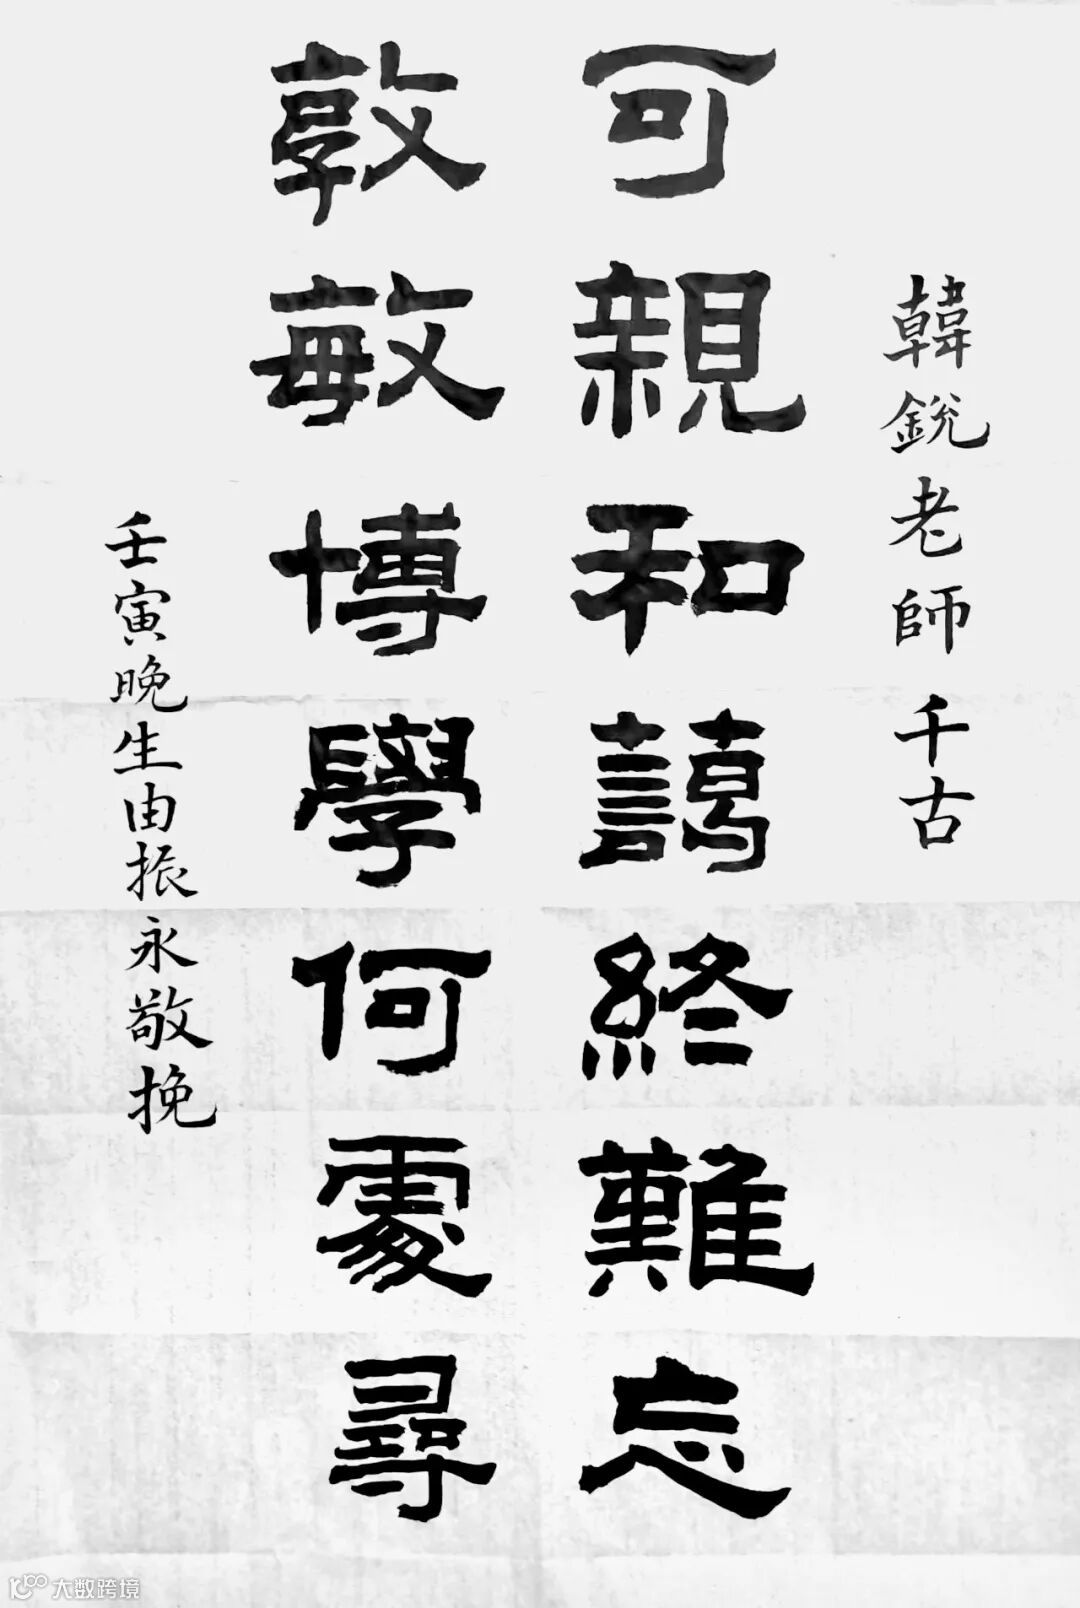 韓銳老師千古
可親和藹終難忘
敦敏博學何處尋
壬寅晚生由振永敬挽
大数跨境